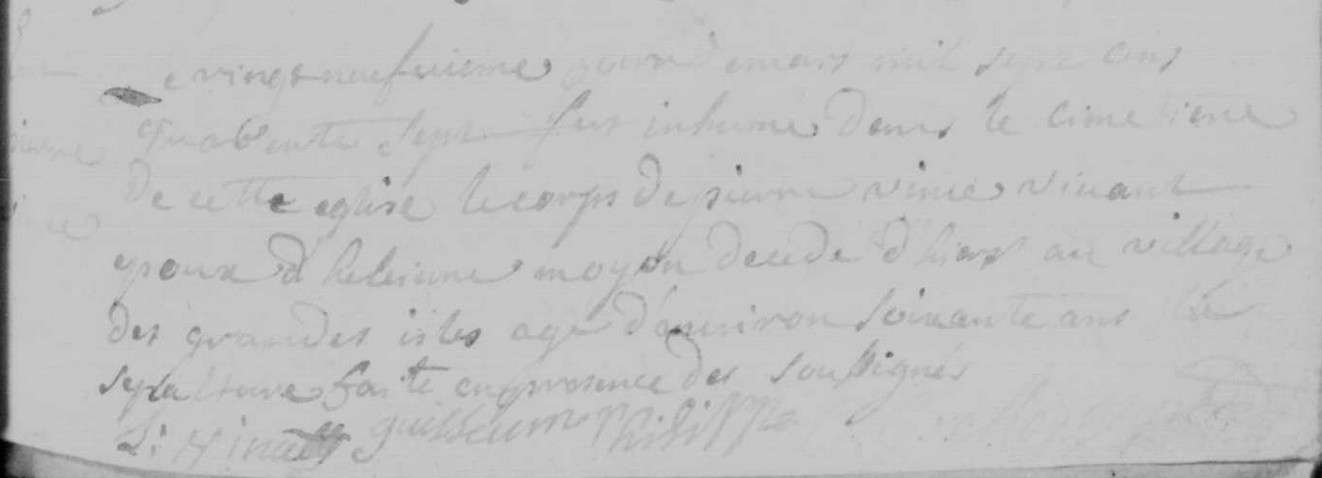 e vingt neufuieme jour de mars mil sept cens
quarente sept fut inhumé dans le cimetiere
de cette eglise le corps de pierre vince vivant
epoux d heleinne moyon decedé d hier au village
des grandes isles agé d'environ soixante ans la
sepulture faite en presence des soussignés
guilleaume philippe